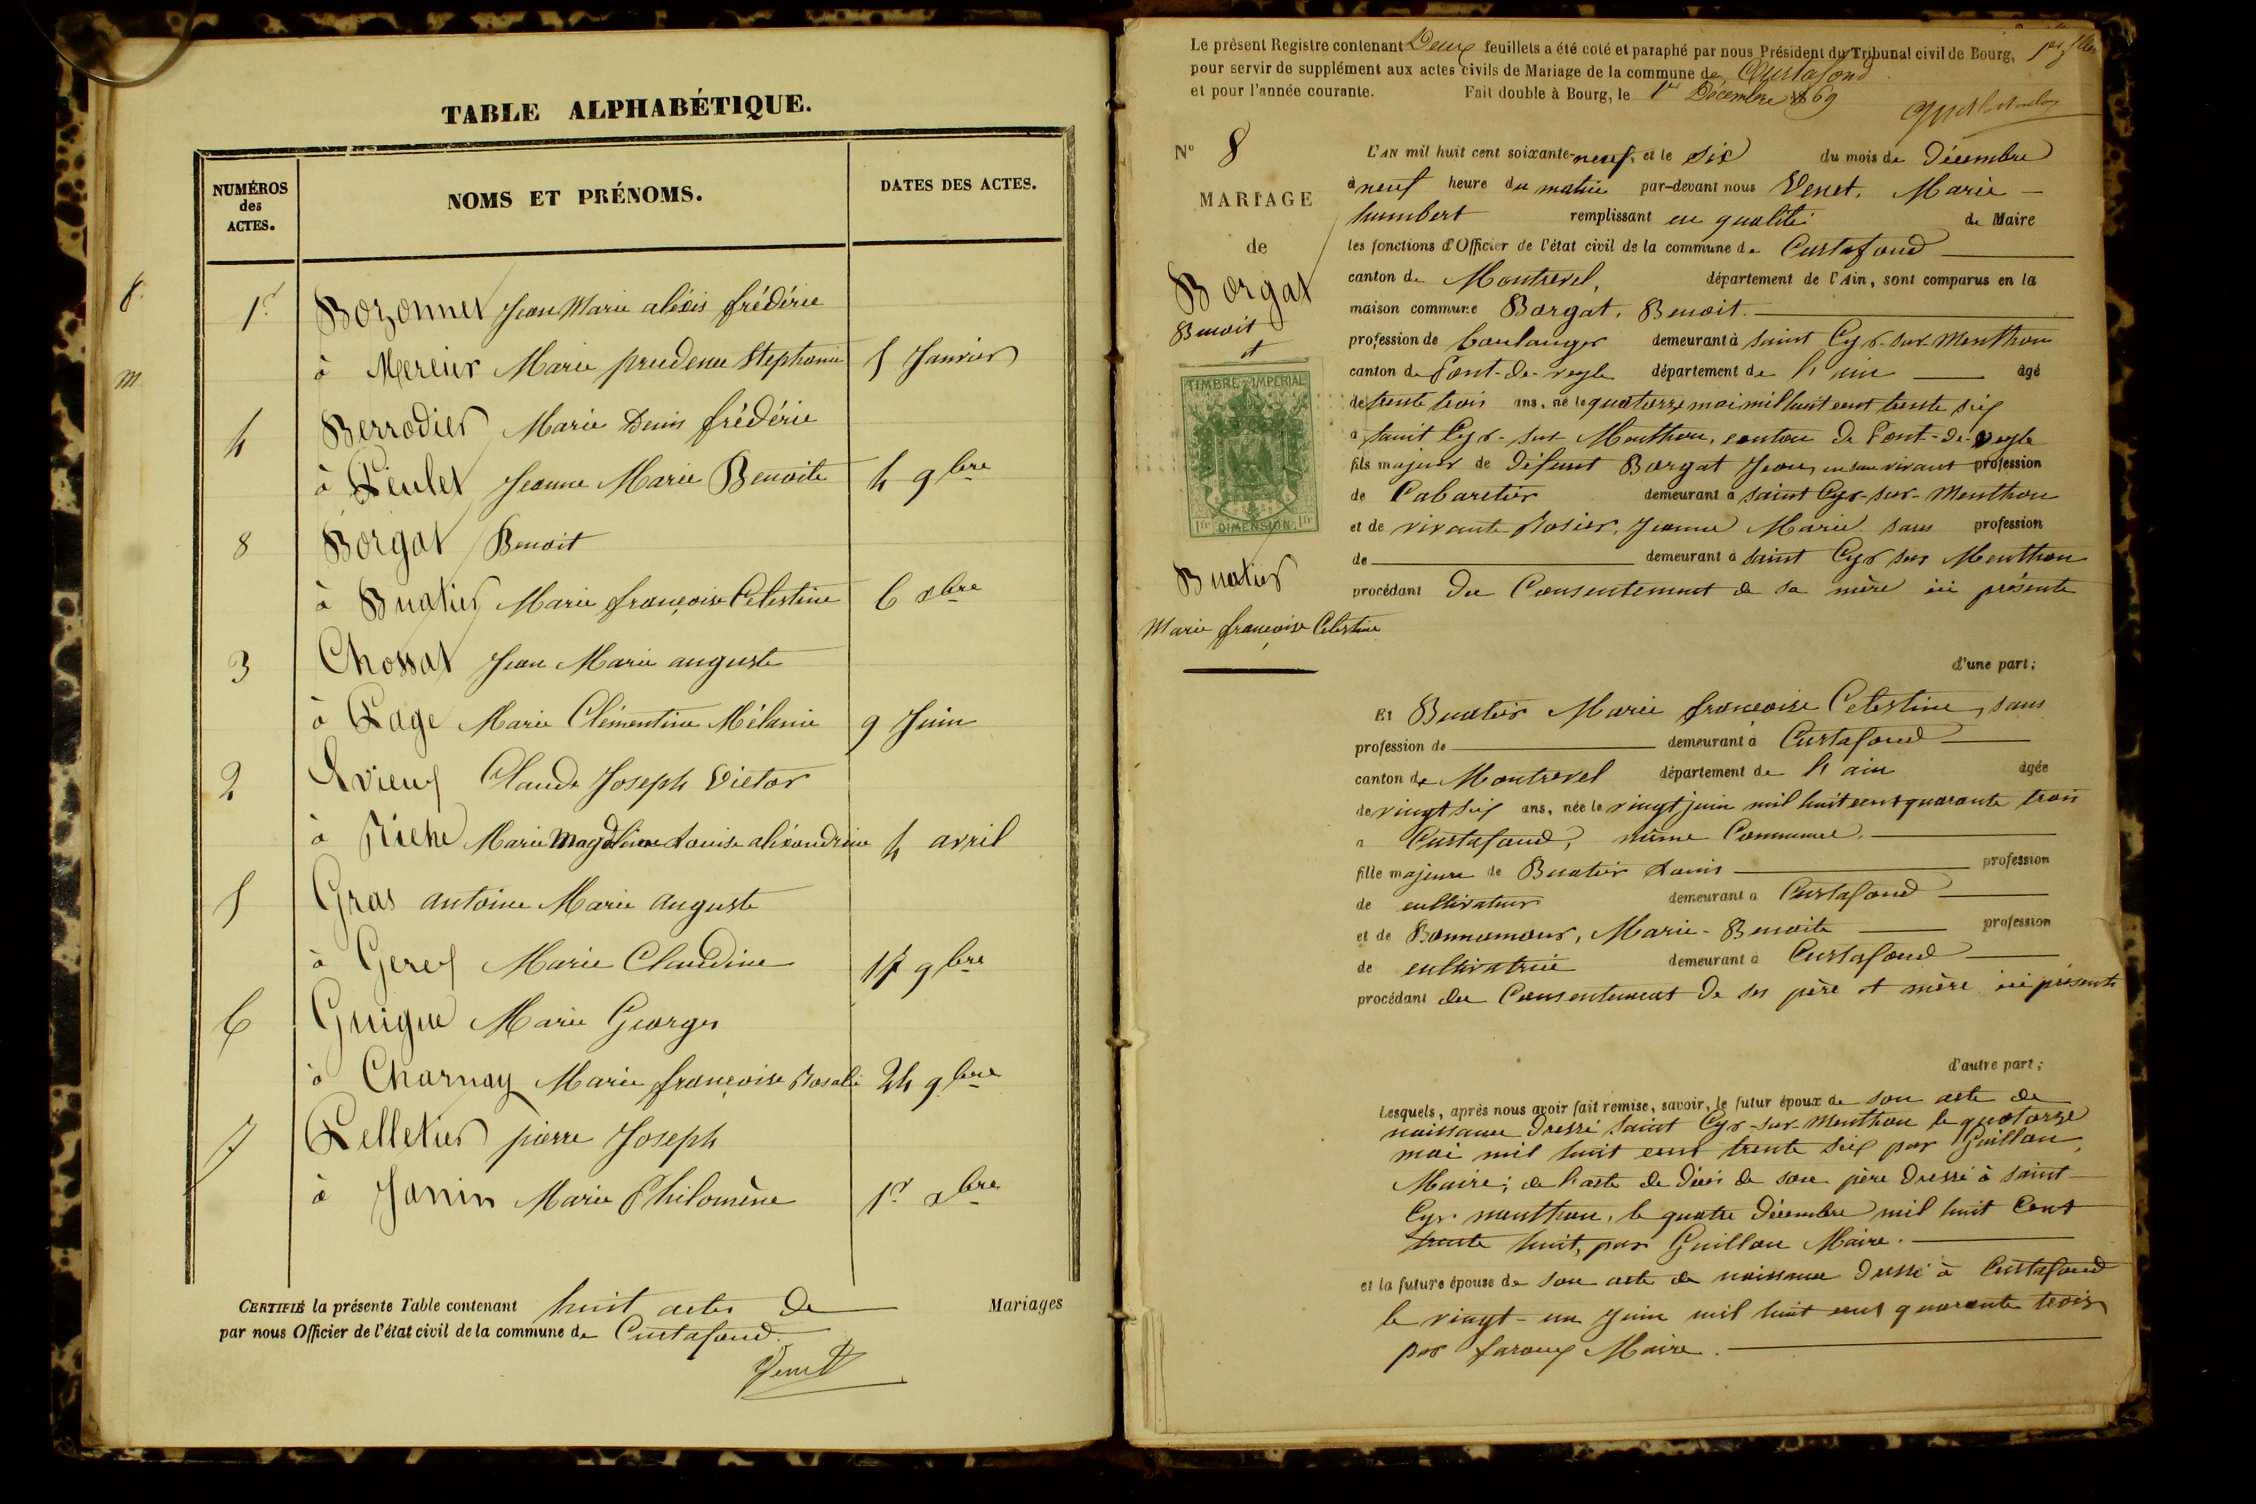 TABLE ALPHABÉTIQUE.
NUMÉROS
des
ACTES.
NOMS ET PRÉNOMS.
DATES DES ACTES.
1er Bozonnet Jean Marie alexis frédéric
m
à Mercier Marie prudence Stephanie 5 Janvier
4 Berrodier Marie Denis frédéric
à Jeanne Marie Benoite 4 9bre
8 Borgat Benoit
à Buatier Marie françoise Celestine 6 xbre
3 Chossat Jean Marie auguste
à Page Marie Clémentine Mélanie 9 Juin
2 Claude Joseph Victor
à Riche Marie Magdeleine Louise alexandrine 4 avril
5 Gras antoine Marie auguste
à Marie Claudine 17 9bre
6 Guigue Marie Georges
à Charnay Marie françoise Rosalie 24 9bre
7 Pelletier pierre Joseph
à Janin Marie Philomène 1er xbre
CERTIFIÉ la présente Table contenant huit actes de Mariages
par nous Officier de l'état civil de la commune de Curtafond.
Venet
Le présent Registre contenant Deux feuillets a été coté et paraphé par nous Président du Tribunal civil de Bourg,
pour servir de supplément aux actes civils de Mariage de la commune de Curtafond
et pour l'année courante. Fait double à Bourg, le 1er Décembre 1869
N° 8
MARIAGE
de
Borgat
Benoit
et
TIMBRE IMPERIAL
1fr DIMENSION 1fr
Buatier
Marie françoise Celestine
L'AN mil huit cent soixante-neuf, et le six du mois de Décembre
à neuf heure du matin par-devant nous Venet, Marie
humbert remplissant en qualité de Maire
les fonctions d'Officier de l'état civil de la commune de Curtafond
canton de Montrevel, département de l'Ain, sont comparus en la
maison commune Borgat, Benoit.
profession de boulanger demeurant à saint Cyr-sur-Menthon
canton de Pont-de-veyle département de l'ain âgé
de trente trois ans, né le quatorze mai mil huit cent trente six
à saint Cyr-sur-Menthon, canton de Pont-de-veyle
fils majeur de défunt Borgat Jean, en son vivant profession
de Cabaretier demeurant à saint Cyr-sur-Menthon
et de vivante Rosier, Jeanne Marie sans profession
de demeurant à saint Cyr sur Menthon
procédant du Consentement de sa mère ici présente
d'une part;
Et Buatier Marie françoise Celestine, sans
profession de demeurant à Curtafond
canton de Montrevel département de l'ain âgée
de vingt six ans, née le vingt juin mil huit cent quarante trois
à Curtafond, même Commune,
fille majeure de Buatier Louis profession
de cultivateur demeurant à Curtafond
et de Bonnamour, Marie-Benoite profession
de cultivatrice demeurant à Curtafond
procédant du Consentement de ses père et mère ici présents
d'autre part;
Lesquels, après nous avoir fait remise, savoir, le futur époux de son acte de
naissance dressé saint Cyr-sur-Menthon le quatorze
mai mil huit cent trente six par Guillon,
Maire; de l'acte de décès de son père dressé à saint
Cyr-menthon, le quatre Décembre mil huit cent
trente huit, par Guillon Maire.
et la future épouse de son acte de naissance dressé à Curtafond
le vingt-un Juin mil huit cent quarante trois
par Maire.